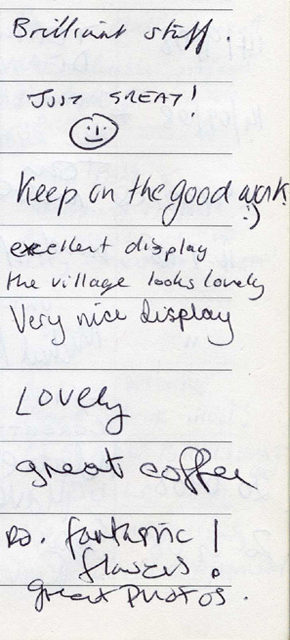 Brilliant stuff.
JUST GREAT!
Keep on the good work
excellent display
the village looks lovely
Very nice display
Lovely
great coffee
P.S. fantastic !
flowers.
great PHOTOS.